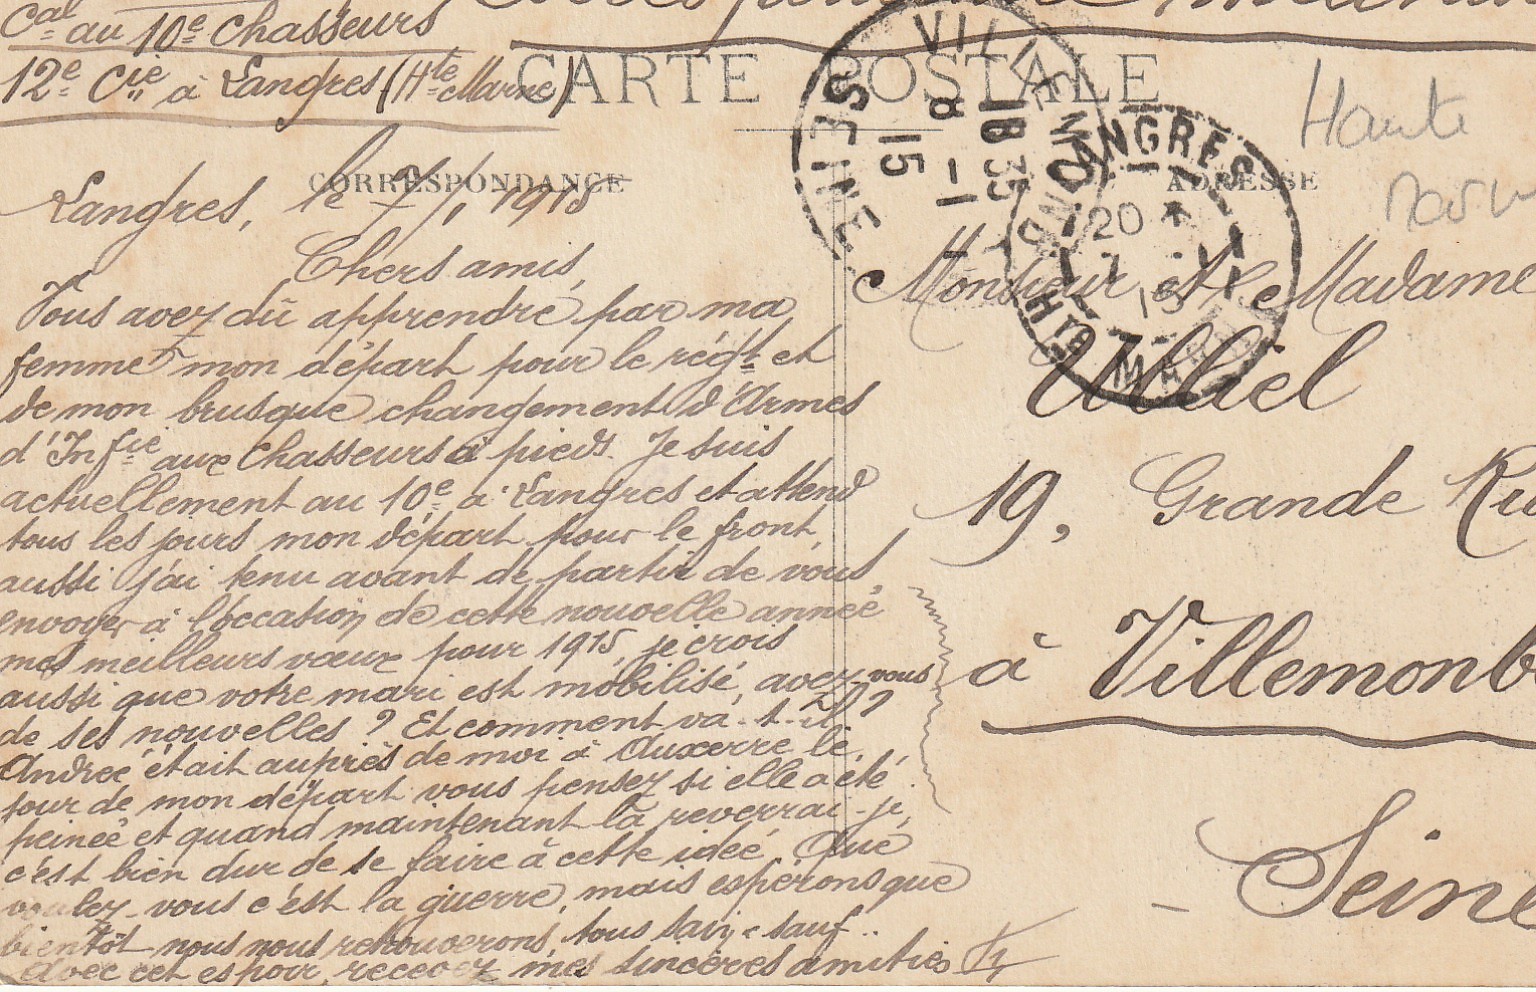 Cal au 10e Chasseurs
12e Cie à Langres (Hte Marne)
CARTE POSTALE
CORRESPONDANCE
ADRESSE
Haute
VILLEMOMBLE
SEINE
18 35
8 - 1
15
LANGRES
20
7 - 1
15
Hte MARNE
Langres, le 7/1, 1915
Chers amis,
Vous avez dû apprendre par ma
femme mon départ pour le régt et
de mon brusque changement d'Armes
d'Infie aux Chasseurs à pieds. Je suis
actuellement au 10e à Langres et attend
tous les jours mon départ pour le front,
aussi j'ai tenu avant de partir de vous
envoyer à l'occation de cette nouvelle année
mes meilleurs vœux pour 1915, je crois
aussi que votre mari est mobilisé, avez-vous
de ses nouvelles ? Et comment va-t-il ?
Andrée était auprès de moi à Auxerre le
jour de mon départ vous pensez si elle a été
peinée et quand maintenant la reverrai-je,
c'est bien dur de se faire à cette idée. Que
voulez-vous c'est la guerre, mais espérons que
bientôt nous nous retrouverons, tous sains & sauf..
Avec cet espoir, recevez mes sincères amitiés
Monsieur et Madame
Ulliel
19, Grande Ru
à Villemomb
Seine